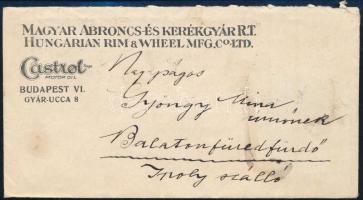 MAGYAR ABRONCS-ÉS KERÉKGYÁR R.T.
HUNGARIAN RIM & WHEEL MFG. CO. LTD.
Castrol
MOTOR OIL
BUDAPEST VI.
GYÁR-UCCA 8
Gyöngy Mina
Balatonfüredfürdő
Ipoly szálló